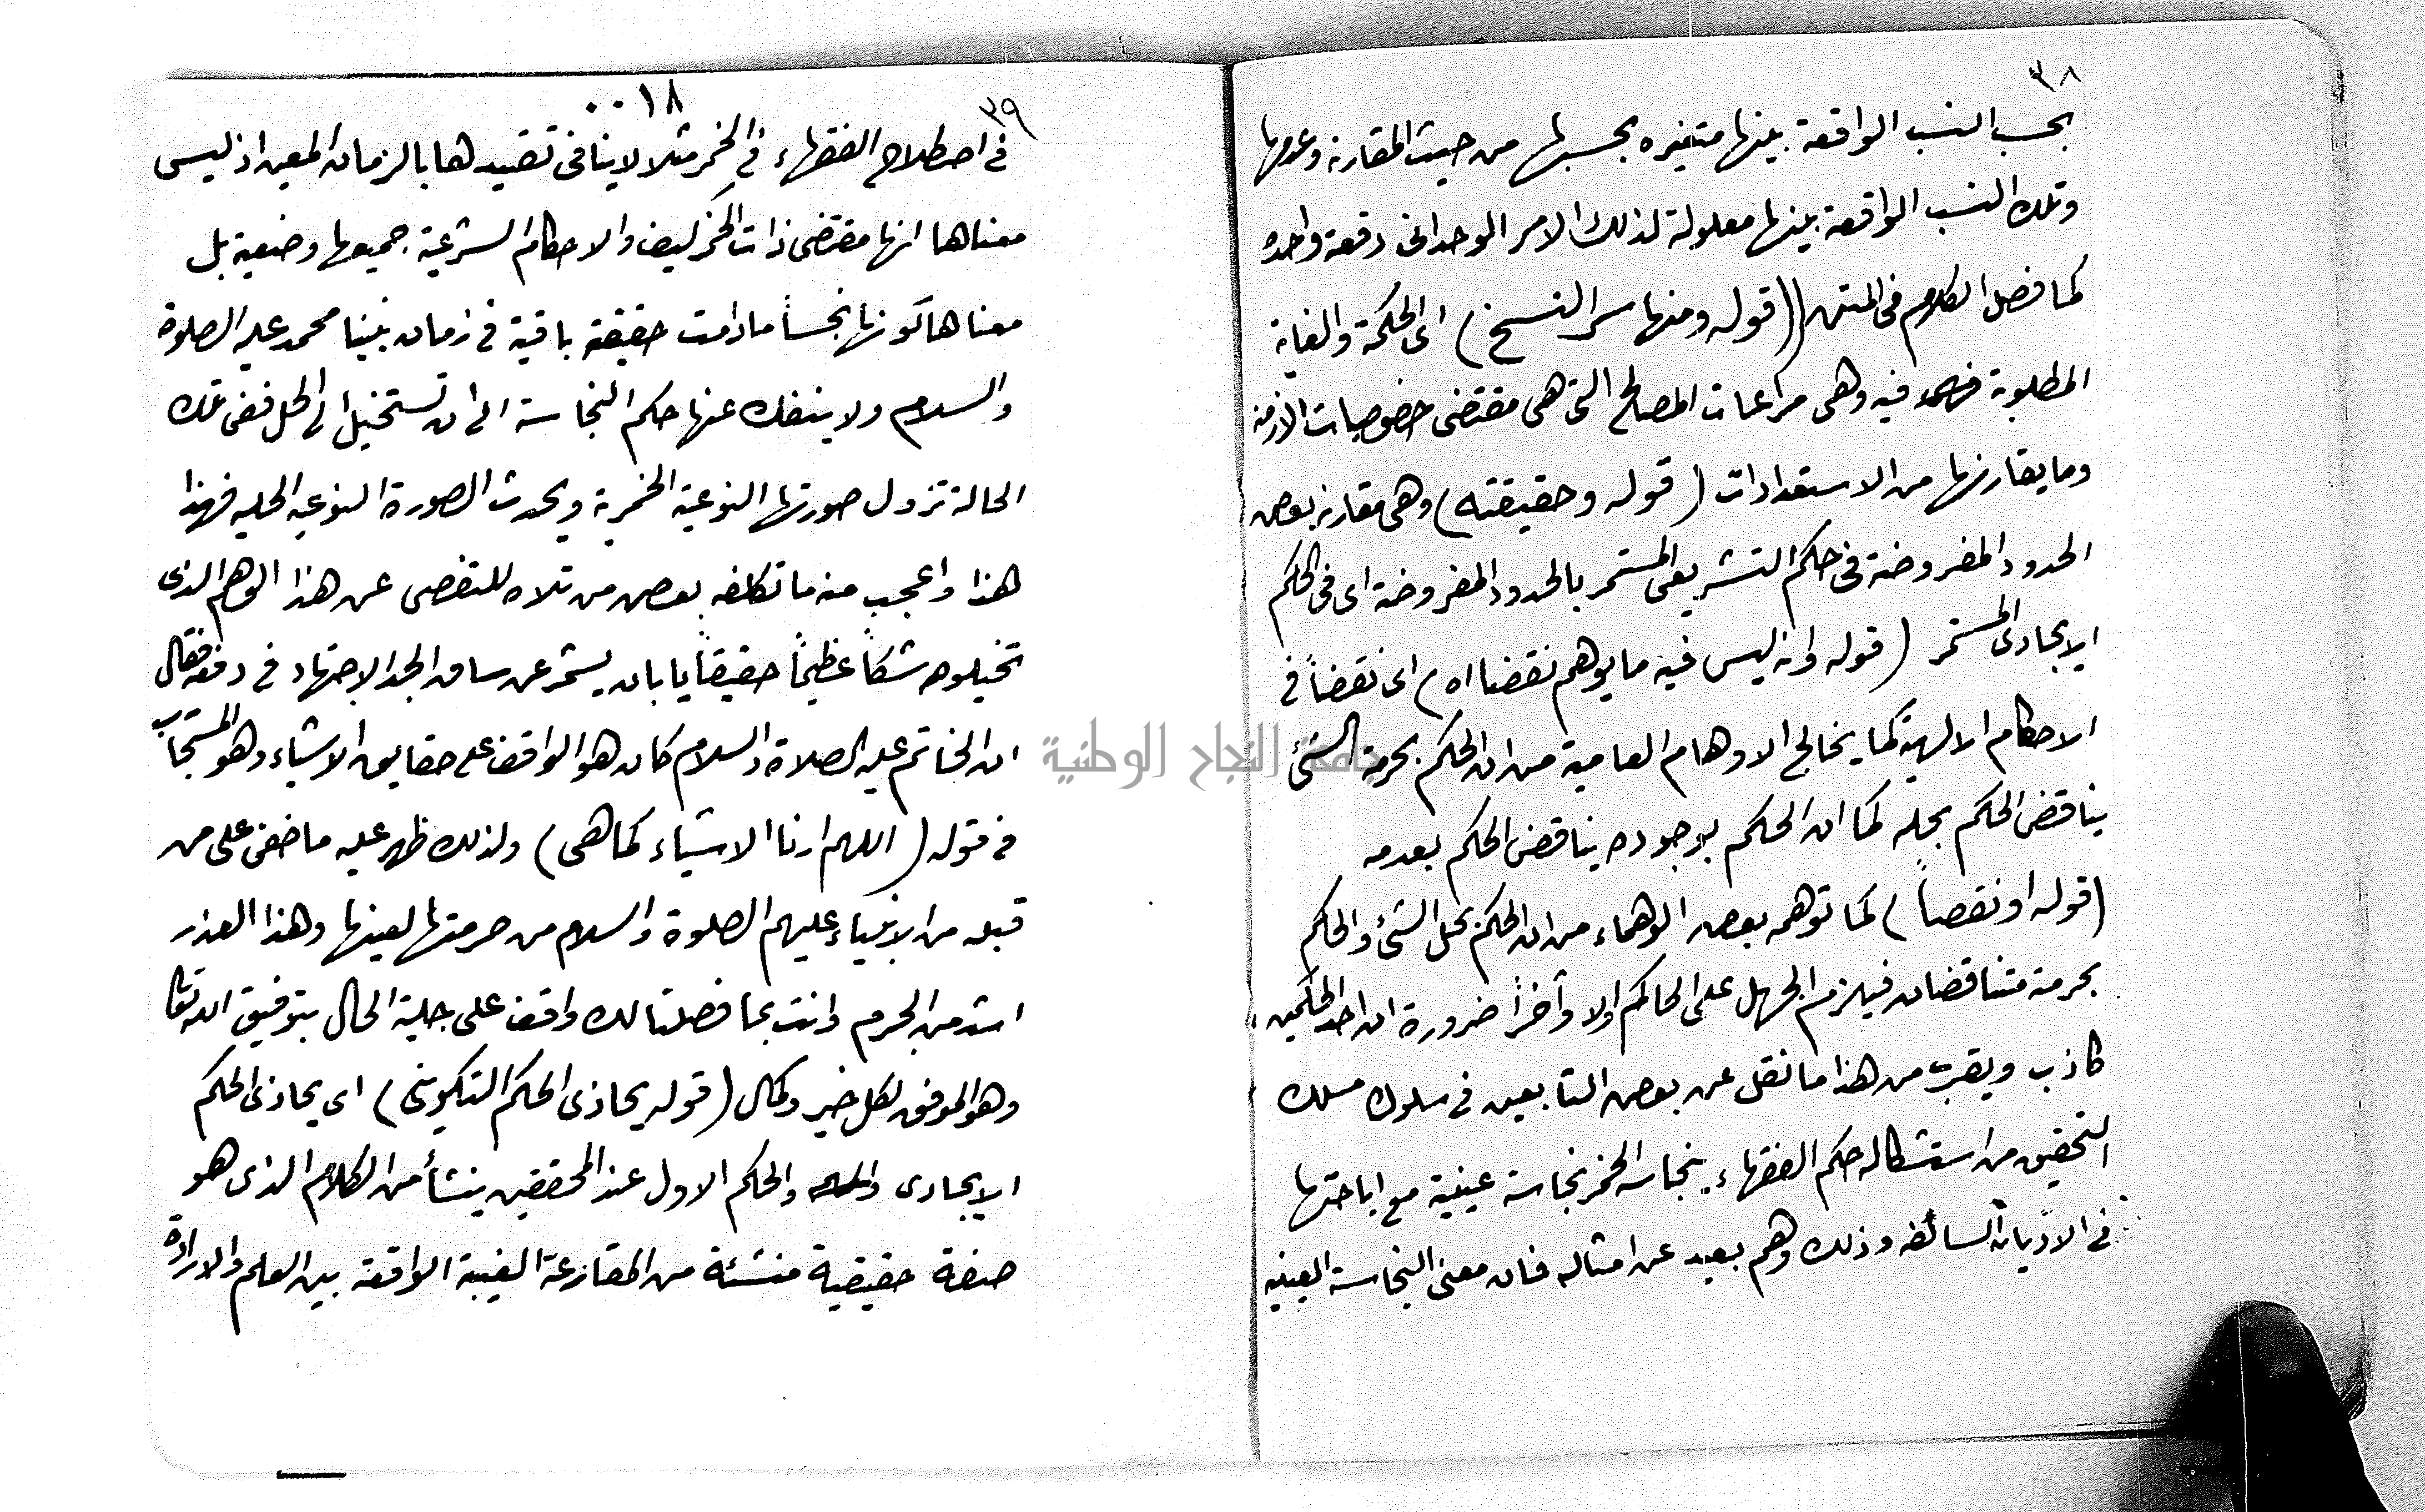 ٣٨
بحسب النسب الواقعة بينها متغيره بحسبها من حيث المقارنه وعدمها
وتلك النسب الواقعة بينها معلولة لذلك الامر الوحداني دفعة واحده
كما فصل الكلام في المتن ((قوله ومنها سر النسخ) اي الحكمة والغاية
المطلوبة فيه وهي مراعات المصالح التي هي مقتضى خصوصيات الازمنه
وما يقارنها من الاستعدادات (قوله وحقيقته) وهي مقارنه بعض
الحدود المفروضة في حكم التشريعي المستمر بالحدود المفروضة اي في الحكم
الايجادي المستمر (قوله وانه ليس فيه ما يوهم نقضا اه) اي نقضاً في
الاحكام الالهية كما يخالج الاوهام العامية من ان الحكم بحرمة الشئ
يناقض الحكم بحله كما ان الحكم بوجوده يناقض الحكم بعدمه
(قوله او نقصاً) كما توهمه بعض الوهماء من ان الحكم بحل الشئ والحكم
بحرمته متناقضان فيلزم الجهل على الحاكم اولا وآخراً ضرورة ان احد الحكمين
كاذب ويقرب من هذا ما نقل عن بعض التابعين في سلوك مسلك
التحقيق من استشكاله حكم الفقهاء بنجاسه الخمر نجاسة عينية مع اباحتها
في الاديان السالفه وذلك وهم بعيد عن امثاله فان معنى النجاسة العينيه
جامعة النجاح الوطنية
٣٩
٠٠١٨
في اصطلاح الفقهاء في الخمر مثلا لا ينافي تقييدها بالزمان المعين اذ ليس
معناها انها مقتضى ذات الخمر كيف والاحكام الشرعية جميعها وضعية بل
معناها كونها نجساً مادامت حقيقة باقية في زمان نبينا محمد عليه الصلوة
والسلام ولا ينفك عنها حكم النجاسة الى ان تستحيل الى الخل ففي تلك
الحالة تزول صورتها النوعية الخمرية ويحدث الصورة النوعيه الخليه فهذا
هذا واعجب منه ما تكلفه بعض من تلاه للتفصى عن هذا الوهم الذي
تخيلوه شكاً عظيماً حقيقاً يا بان يشمر عن ساق الجد الاجتهاد في دفعه فقال
ان الخاتم عليه الصلاة والسلام كان هو الواقف على حقايق الاشياء وهو المستجاب
في قوله (اللهم ارنا الاشياء كما هي) ولذلك ظهر عليه ما خفي على من
قبله من الانبياء عليهم الصلوة والسلام من حرمتها لعينها وهذا العذر
اشد من الجرم وانت بما فصلنا لك واقف على جلية الحال بتوفيق الله تعالى
وهو الموفق لكل خير وكمال (قوله يحاذي الحكم التكويني) اي يحاذي الحكم
الايجادي والحكم الاول عند المحققين ينشأ من الكلام الذي هو
صفة حقيقية منشئة من المقارعة الغيبية الواقعة بين العلم والارادة